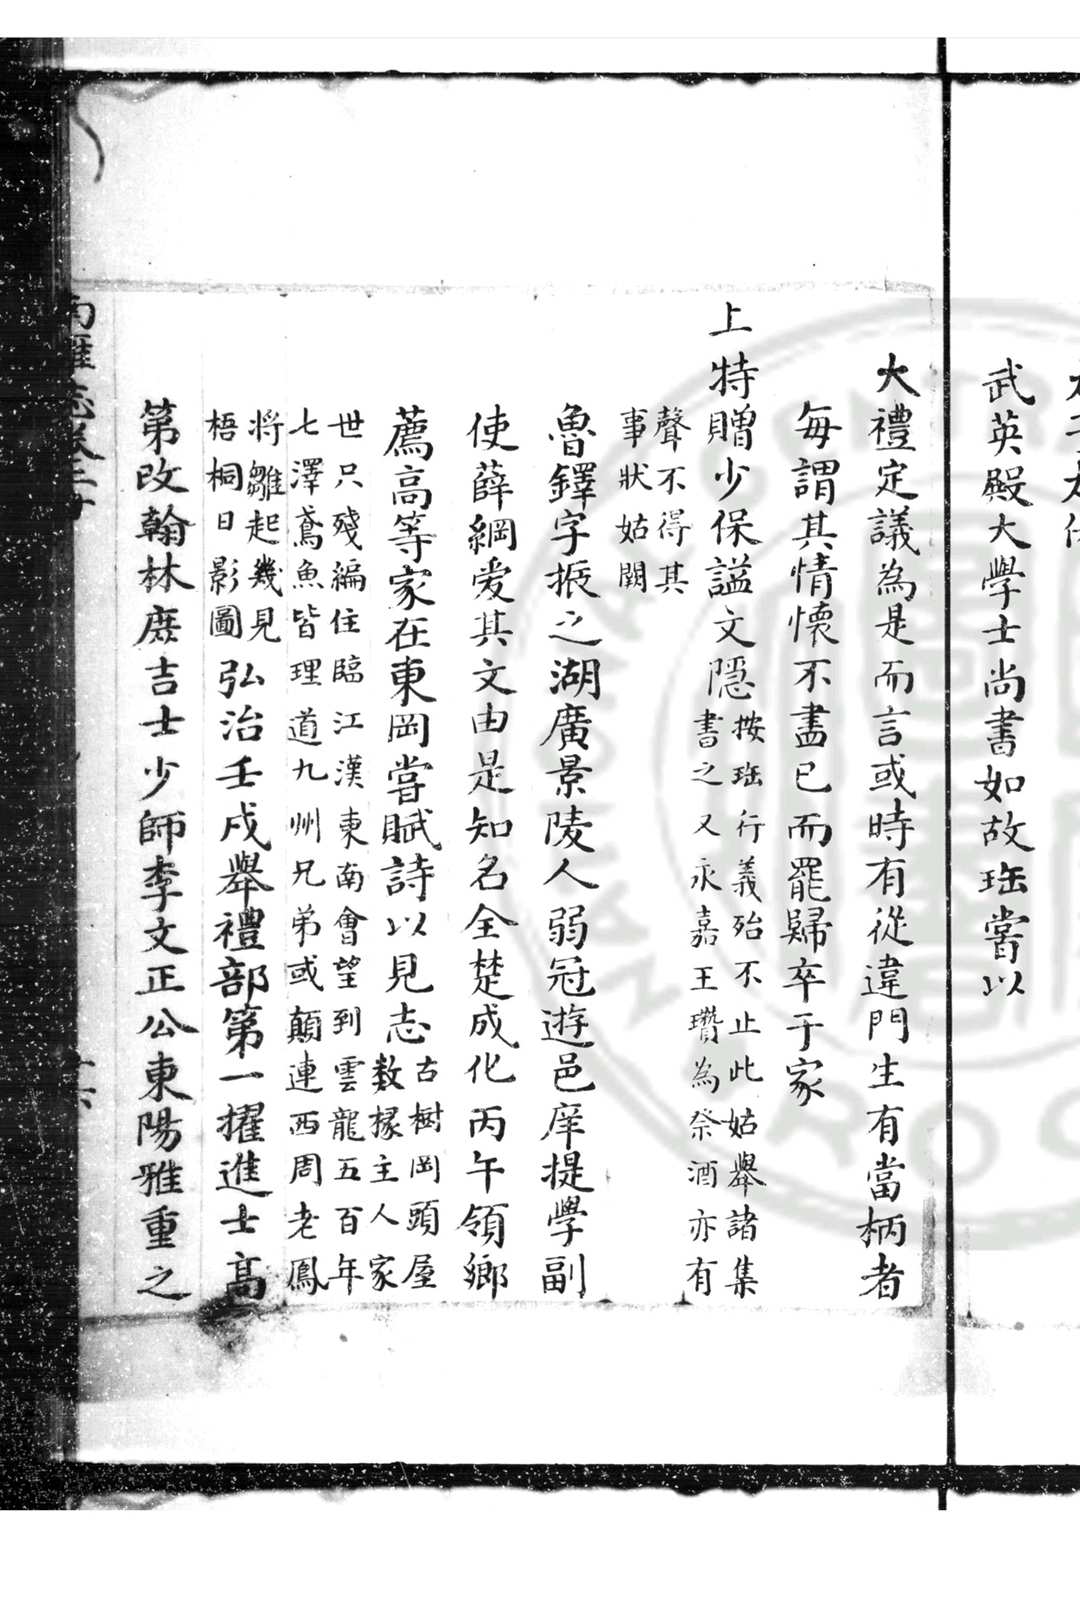 武英殿大學士尚書如故珤嘗以
大禮定議為是而言或時有從違門生有當柄者
每謂其情懷不盡已而罷歸卒于家
上特贈少保謚文隱
按珤行義殆不止此姑舉諸集
書之又永嘉王瓚為祭酒亦有
聲不得其
事狀姑闕
魯鐸字振之湖廣景陵人弱冠遊邑庠提學副
使薛綱爱其文由是知名全楚成化丙午領鄉
薦高等家在東岡嘗賦詩以見志
古樹岡頭屋
数椽主人家
世只殘編住臨江漢東南會望到雲龍五百年
七澤鳶魚皆理道九州兄弟或顛連西周老鳳
將雛起幾見
梧桐日影圖
弘治壬戌舉禮部第一擢進士高
第改翰林庶吉士少師李文正公東陽雅重之